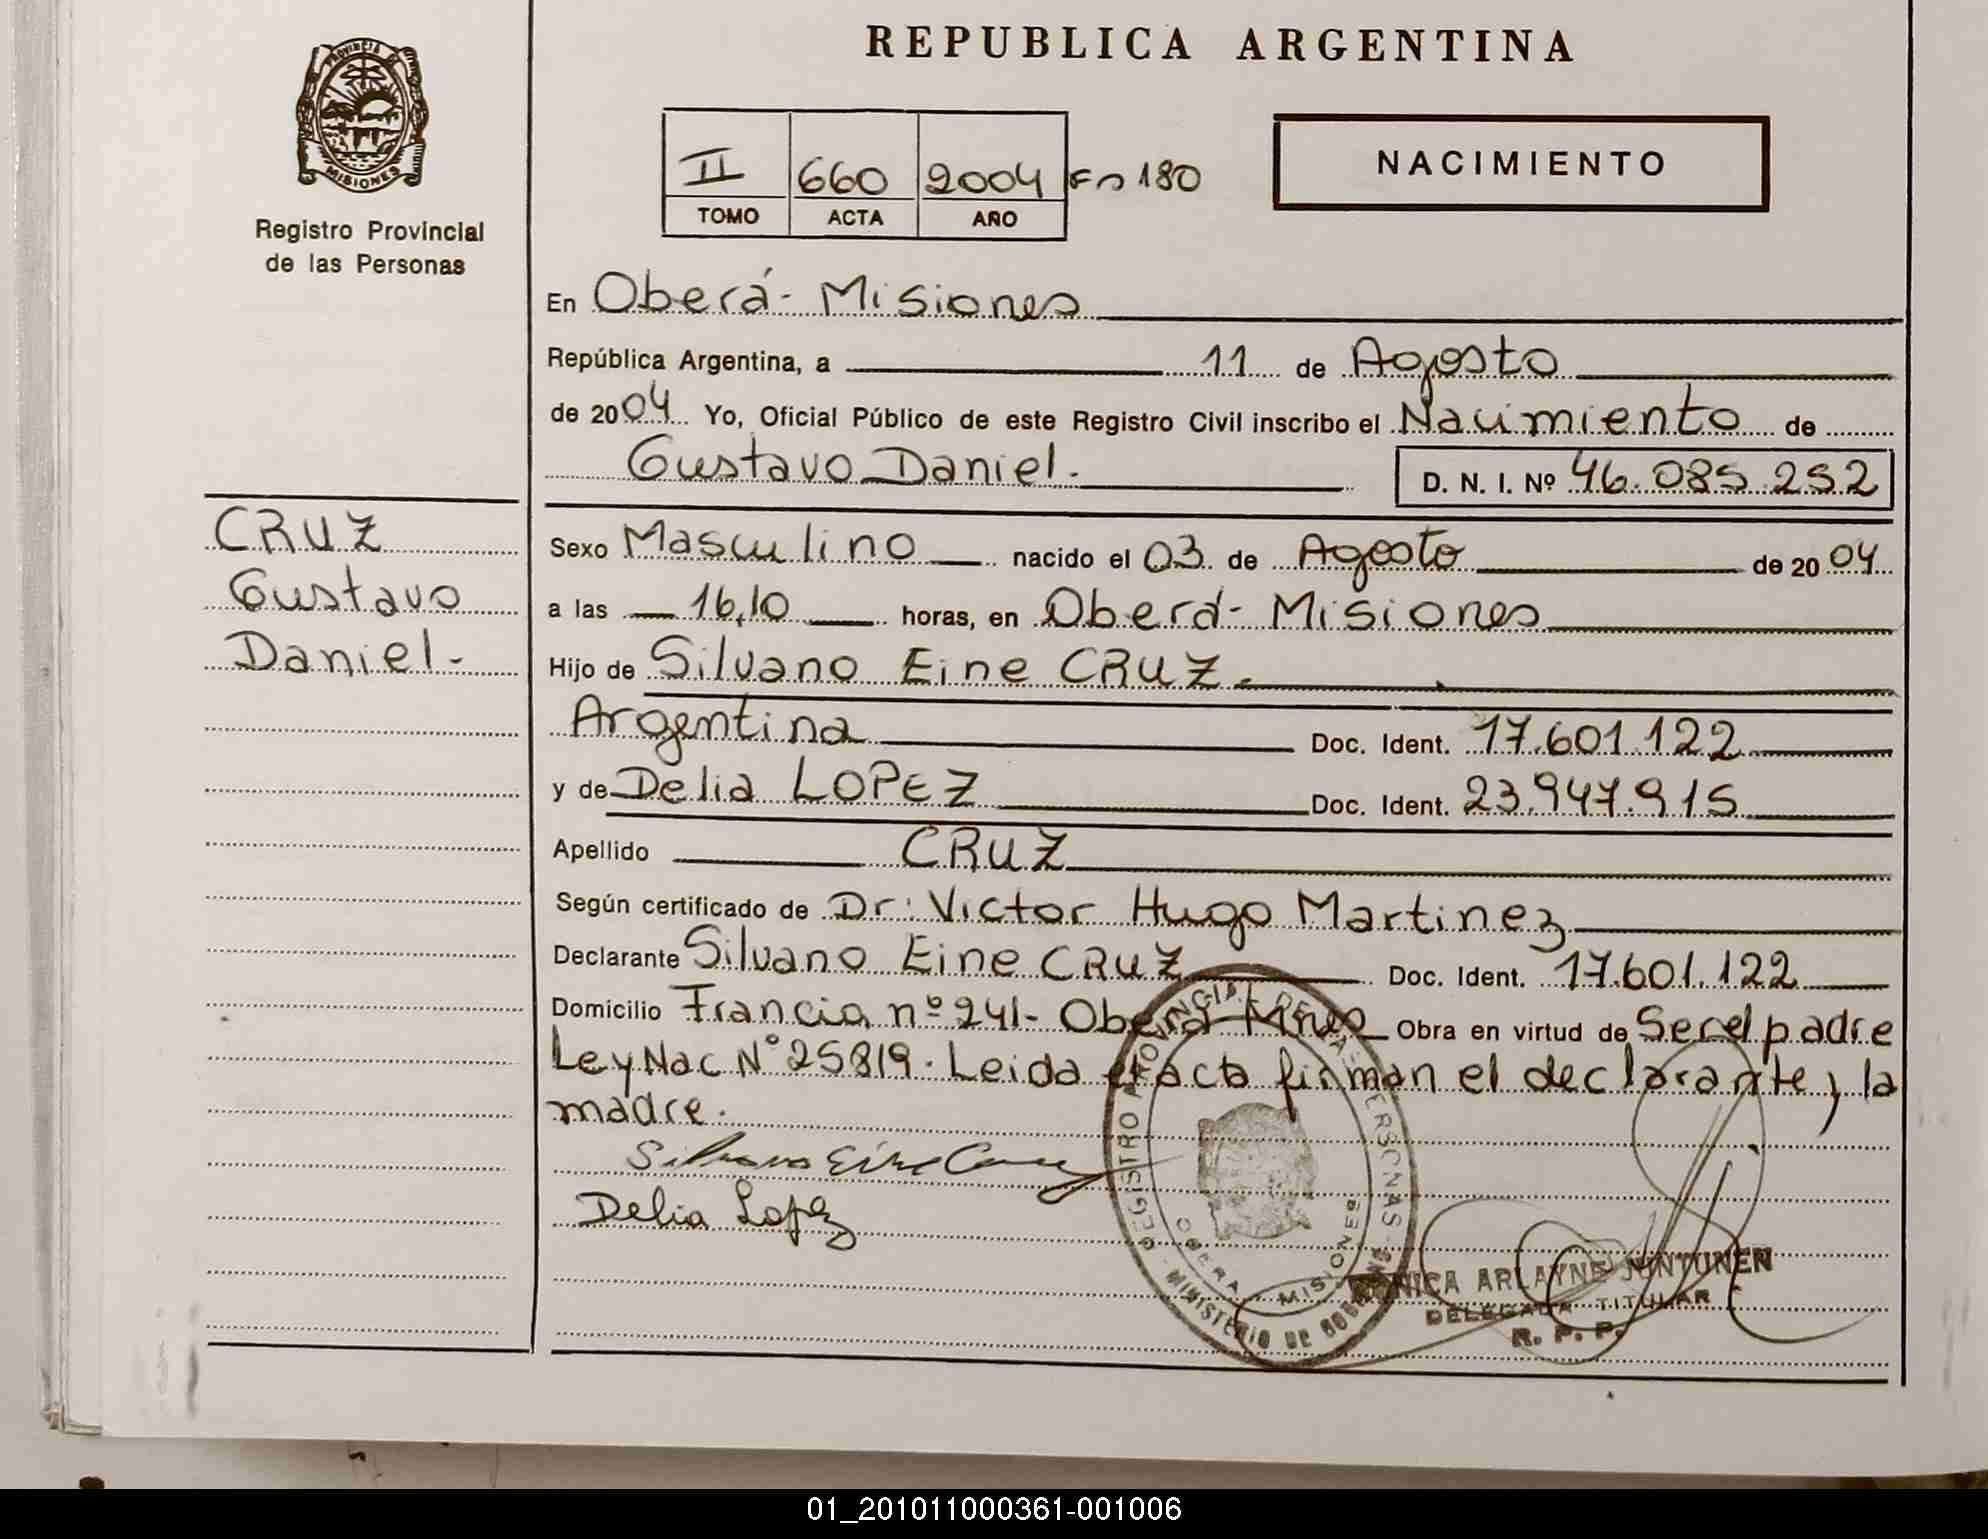 REPUBLICA ARGENTINA
PROVINCIA DE
MISIONES
Registro Provincial
de las Personas
II 660 2004 Fº 180
TOMO ACTA AÑO
NACIMIENTO
En Oberá - Misiones
República Argentina, a 11 de Agosto
de 2004 Yo, Oficial Público de este Registro Civil inscribo el Nacimiento de
Gustavo Daniel.
D. N. I. Nº 46.085.252
CRUZ
Gustavo
Daniel.-
Sexo Masculino nacido el 03 de Agosto de 2004
a las 16,10 horas, en Oberá - Misiones
Hijo de Silvano Eine CRUZ.
Argentina Doc. Ident. 17.601.122
y de Delia LOPEZ Doc. Ident. 23.947.915
Apellido CRUZ
Según certificado de Dr: Victor Hugo Martinez
Declarante Silvano Eine CRUZ Doc. Ident. 17.601.122
Domicilio Francia nº 241- Oberá Mnes Obra en virtud de Ser el padre
Ley Nac Nº 25819. Leida el acta firman el declarante y la
madre.
Silvano Eine Cruz
Delia Lopez
REGISTRO PROVINCIAL DE LAS PERSONAS
MINISTERIO DE GOBIERNO
OBERA MISIONES
ARLAYNE JUNTUNEN
DELEGADA TITULAR
R. P. P.
01_201011000361-001006